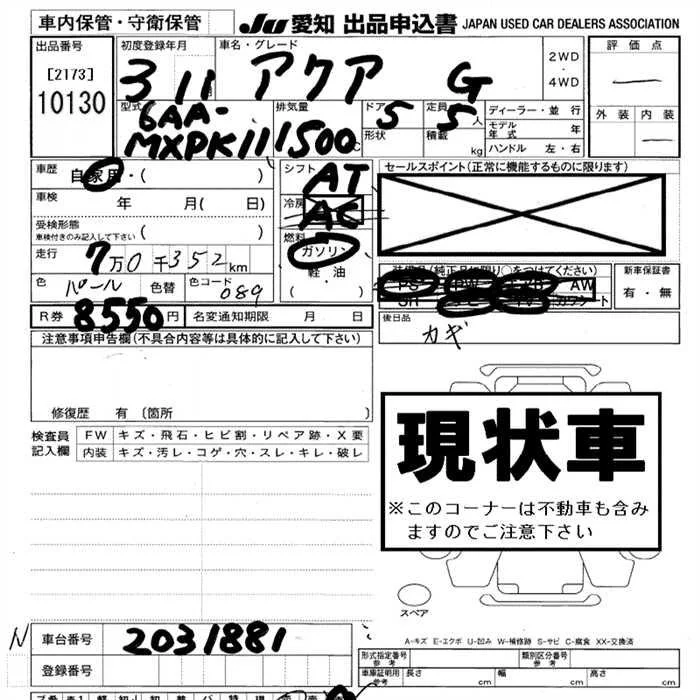 車内保管・守衛保管
JU 愛知 出品申込書 JAPAN USED CAR DEALERS ASSOCIATION
出品番号
[2173]
10130
初度登録年月
3 11
車名・グレード
アクア G
2WD
・
4WD
評価点
外装 内装
型式
6AA-
MXPK11
排気量
1500
ドア
5
形状
定員
5人
積載 kg
ディーラー・並行
モデル
年式 年
ハンドル 左・右
車歴
自家用・( )
車検 年 月( 日)
受検形態
車検付きのみ記入して下さい ( )
走行 7万0千352km
色 パール 色替 色コード 089
シフト
AT
冷房
AC
燃料
ガソリン
軽・油
( )
セールスポイント(正常に機能するものに限ります)
装備品(純正品に限り○をつけてください)
PS PW AW
SR カワシート
新車保証書
有・無
R券 8550円 名変通知期限 月 日
後日品
カギ
注意事項申告欄(不具合内容等は具体的に記入して下さい)
修復歴 有 〔箇所 〕
検査員
記入欄
FW キズ・飛石・ヒビ割・リペア跡・X要
内装 キズ・汚レ・コゲ・穴・スレ・キレ・破レ
現状車
※このコーナーは不動車も含み
ますのでご注意下さい
スペア
A-キズ E-エクボ U-凹み W-補修跡 S-サビ C-腐食 XX-交換済
N 車台番号 2031881
登録番号
形式指定番号
参考
類別区分番号
参考
車庫証明用
参考
長さ cm 幅 cm 高さ cm